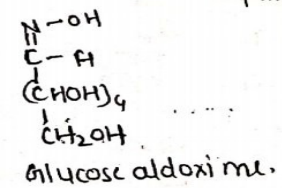 N-OH
||
C-H
|
(CHOH)4
|
CH2OH .....
Glucose aldoxime.